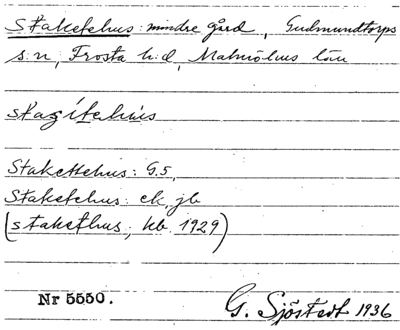 Staketehus: mindre gård, Gudmundtorps
s:n, Frosta h:d, Malmöhus län
stagítehùs
Stakettehus: G.5,
Staketehus: ek, jb
(stakethus, kb 1929)
Nr 5550. G. Sjöstedt 1936